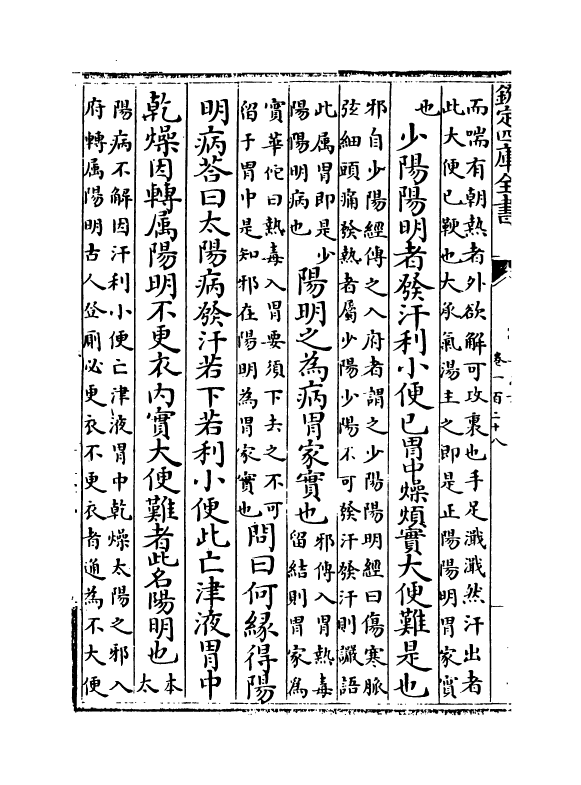 欽定四庫全書
卷一百二十八
而喘有朝熱者外欲解可攻裏也手足濈濈然汗出者
此大便已鞕也大承氣湯主之即是正陽陽明胃家實
也
少陽陽明者發汗利小便已胃中燥煩實大便難是也
邪自少陽經傳之入府者謂之少陽陽明經曰傷寒脈
弦細頭痛發熱者屬少陽少陽不可發汗發汗則讝語
此属胃即是少
陽陽明病也
陽明之為病胃家實也
邪傳入胃熱毒
留結則胃家為
實華佗曰熱毒入胃要須下去之不可
留于胃中是知邪在陽明為胃家實也
問曰何緣得陽
明病荅曰太陽病發汗若下若利小便此亡津液胃中
乾燥因轉属陽明不更衣内實大便難者此名陽明也
本
太
陽病不解因汗利小便亡津液胃中乾燥太陽之邪入
府轉属陽明古人登廁必更衣不更衣者通為不大便